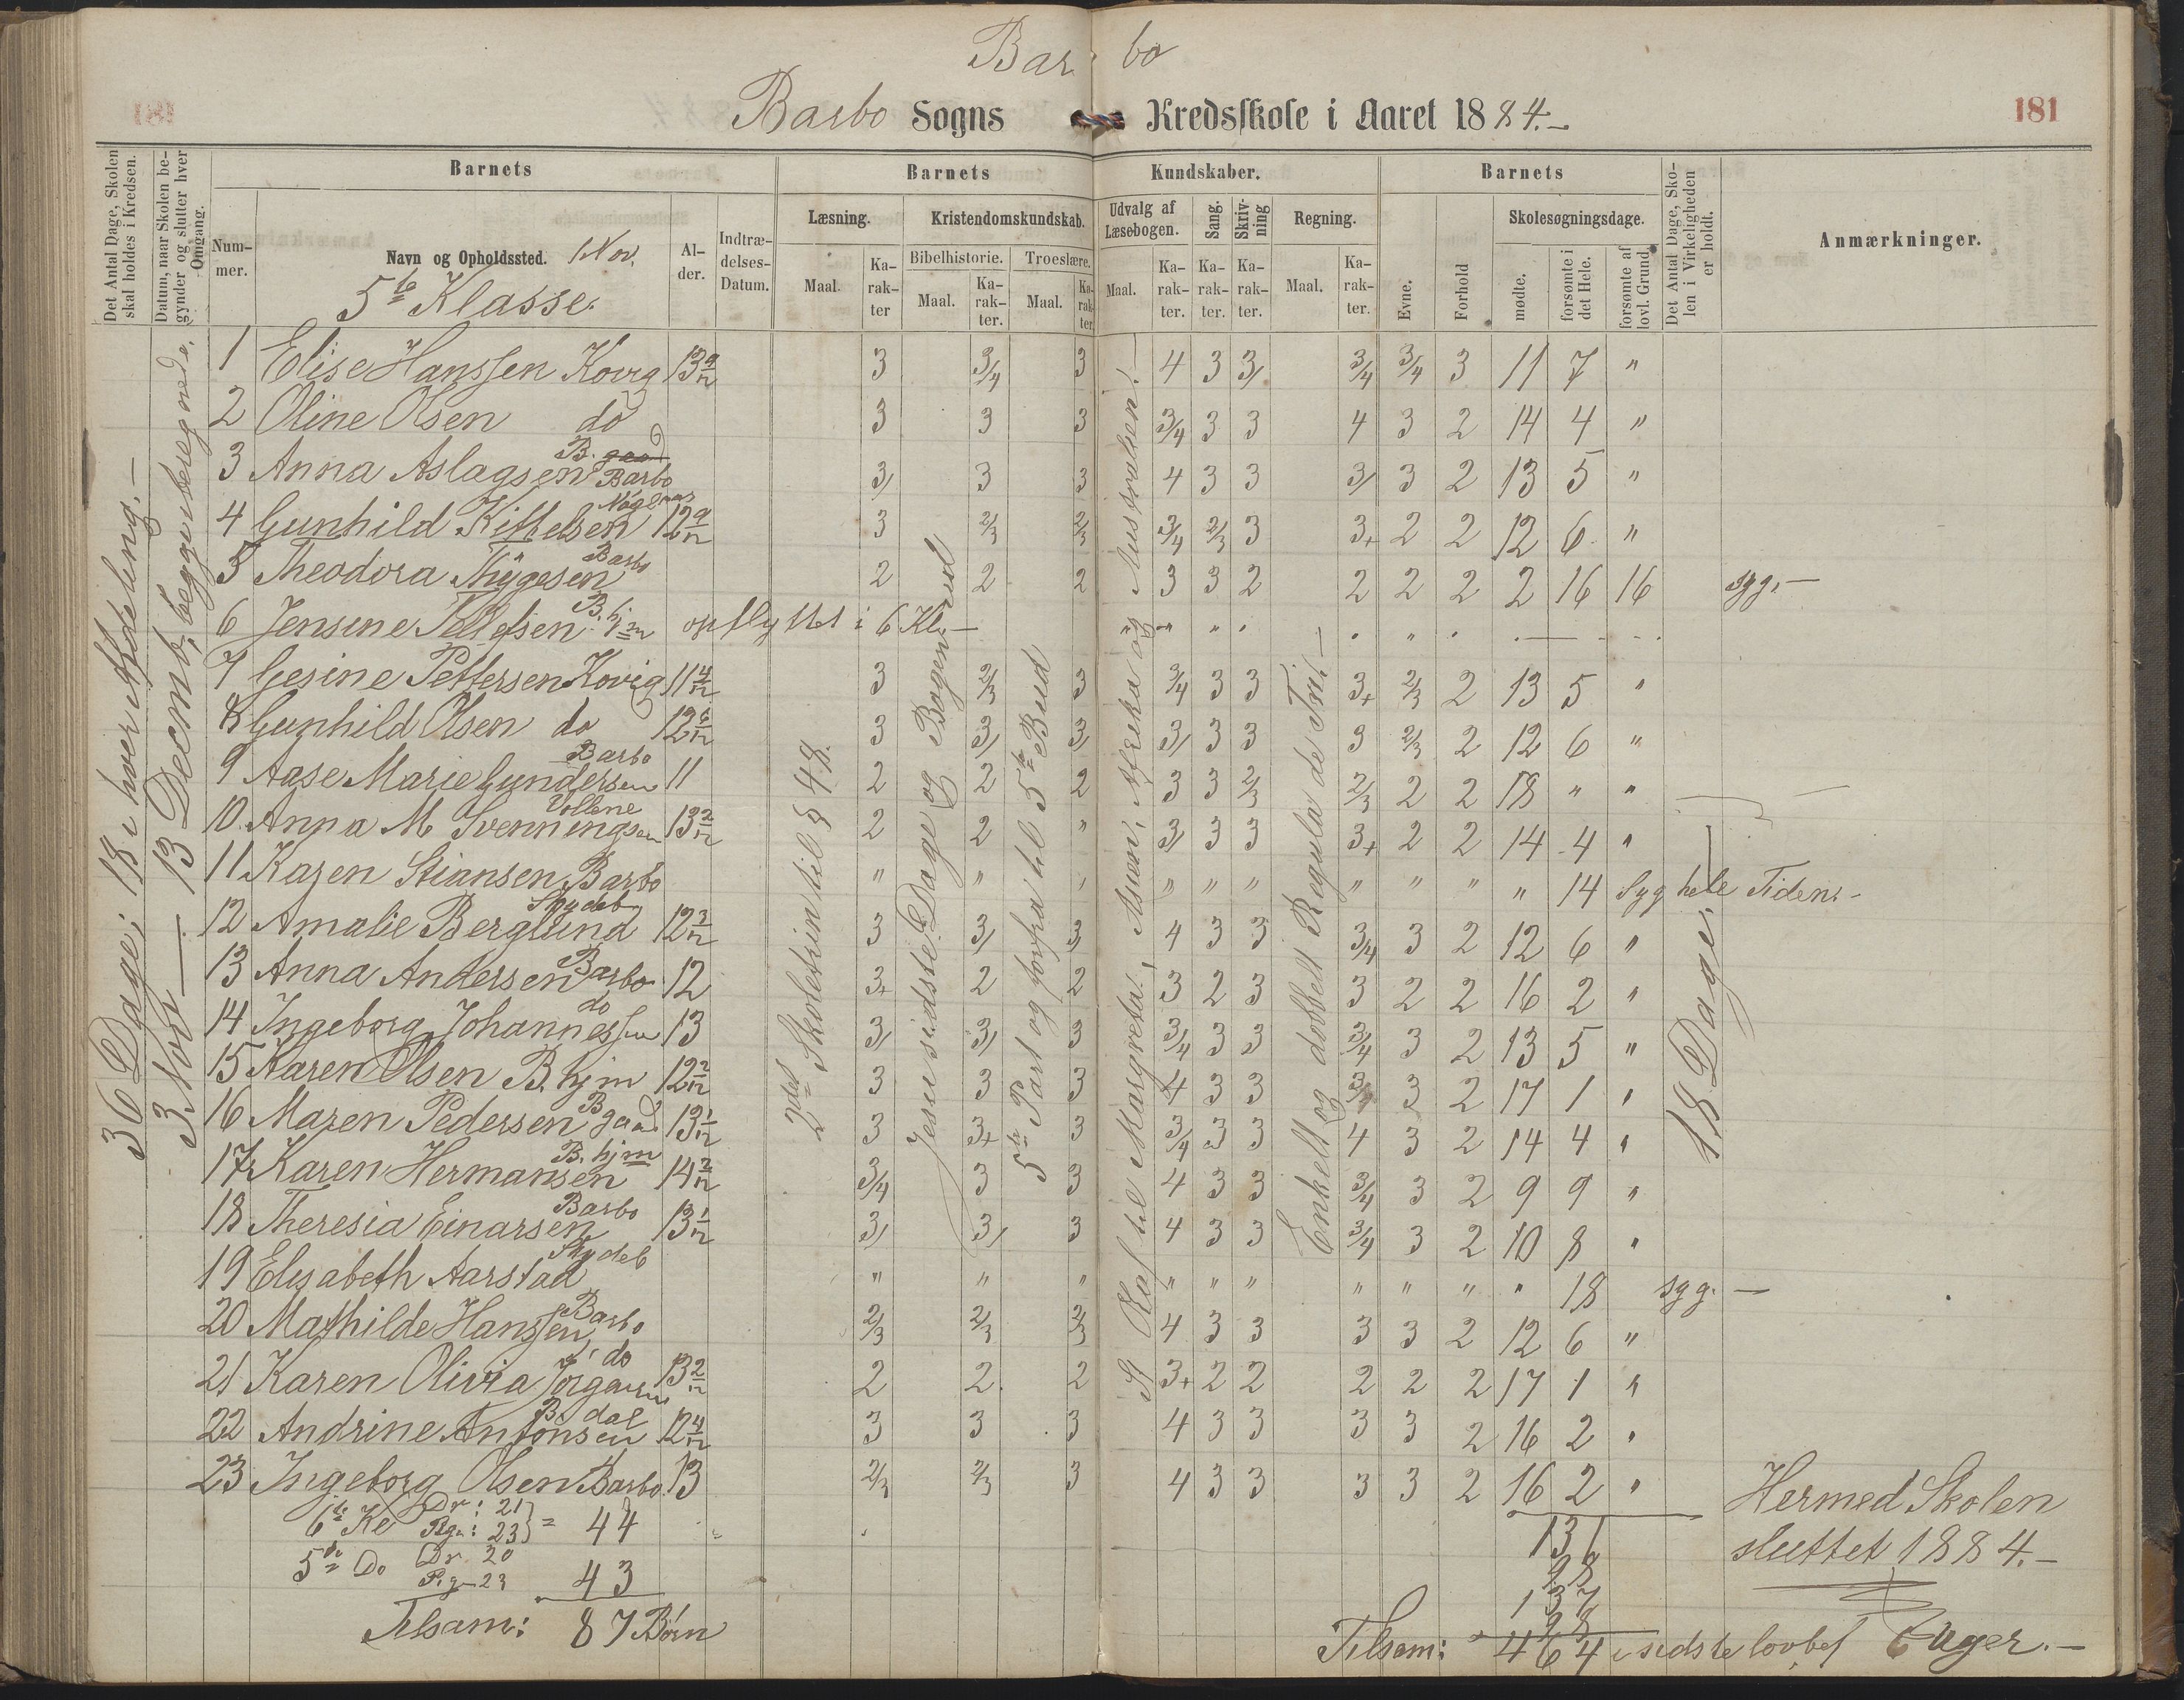 Bar bo
Barbo Sogns Kredsskole i Aaret 1884.-
181
Det Antal Dage, Skolen skal holdes i Kredsen.
Datum, naar Skolen begynder og slutter hver Omgang.
Barnets
Barnets Kundskaber.
Barnets
Det Antal Dage, Skolen i Virkeligheden er holdt.
Anmærkninger.
Nummer.
Navn og Opholdssted. 1 Nov.
5te Klasse.
Alder.
Indtrædelses-Datum.
Læsning. Maal. Karakter
Kristendomskundskab.
Bibelhistorie. Maal. Karakter.
Troeslære. Maal. Karakter.
Udvalg af Læsebogen. Maal. Karakter.
Sang. Karakter.
Skrivning Karakter.
Regning. Maal. Karakter.
Evne.
Forhold
Skolesøgningsdage.
mødte.
forsømte i det Hele.
forsømte af lovl. Grund.
36 Dage; 18 i hver Afdeling.-
3 Nov - 13 Decemb, begge iberegnede.
2det Skoletrin til § 48.
Jesu sidste Dage og
5te Part og forfra til 5te Bud
St Olaf til Margreta. Asien, Afrika og Australien.
Enkelt og dobbelt Regula de Tri.-
18 Dage.
1 Elise Hanssen Kovig 13 9/12 3 3/4 3 4 3 3/ 3/4 3/4 3 11 7 "
2 Oline Olsen do 3 3 3 3/4 3 3 4 3 2 14 4 "
3 Anna Aslagsen Barbo 3/ 3 3 4 3 3 3/ 3 2 13 5 "
4 Gunhild Kittelsen 12 9/12 3 2/3 2/3 3/4 2/3 3 3+ 2 2 12 6 "
5 Theodora Thygesen Barbo 2 2 2 3 3 2 2 2 2 2 16 16 syg.-
6 Jensine B.hjm opflyttet i 6 Kl.-
7 Gesine Pettersen Kovig 11 4/12 3 2/3 3 3/4 3 3 3+ 2/3 2 13 5 "
8 Gunhild Olsen do 12 6/12 3 3/ 3/ 3/ 3 3 3 2/3 2 12 6 "
9 Aase Marie Gundersen Barbo 11 2 2 2 3 3 2/3 2/3 2 2 18 " "
10. Anna M Svenningsen Vollene 13 2/12 2 2 " 3/ 3 3 3+ 2 2 14 4 "
11 Karen Stiansen Barbo " " " " " " " " " " 14 Syg hele Tiden.-
12 Amalie Berglund Skydeb 12 3/12 3 3/ 3/ 4 3 3 3/4 3 2 12 6 "
13 Anna Andersen Barbo 12 3+ 2 2 3 2 3 3 2 2 16 2 "
14 Ingeborg Johannessen do 13 3/ 3/ 3 3/4 3 3 3/4 3 2 13 5 "
15 Karen Olsen B. hjm 12 2/12 3 3 3 4 3 3 3/ 3 2 17 1 "
16 Maren Pedersen B gaad 13 1/12 3 3+ 3 3/4 3 3 4 3 2 14 4 "
17 Karen Hermansen B. hjm 14 2/12 3/4 3 3 4 3 3 3/4 3 2 9 9 "
18 Theresia Einarsen Barbo 13 1/12 3/ 3/ 3 4 3 3 3/4 3 2 10 8 "
19 Elisabeth Aarstad Skydeb " " " " " " " " " " 18 syg. -
20 Mathilde Hanssen Barbo 2/3 2/3 2/3 4 3 3 3 3 2 12 6 "
21 Karen Olivia Jörgensen do 13 2/12 2 2 2 3+ 2 2 2 2 2 17 1 "
22 Andrine Antonsen B. dal 12 4/12 3 3 3 4 3 3 3 3 2 16 2 "
23 Ingeborg Olsen Barbo 13 2/3 2/3 3 4 3 3 3 3 2 16 2 "
6te Kl Dr: 21 Pgr: 23 } = 44
5te Do Dr 20 Pig 23 43
Tilsam: 87 Börn
131
98
137
98
Tilsam: 464 i sidste lovbef 6 Uger.-
Hermed Skolen
sluttet 1884.-